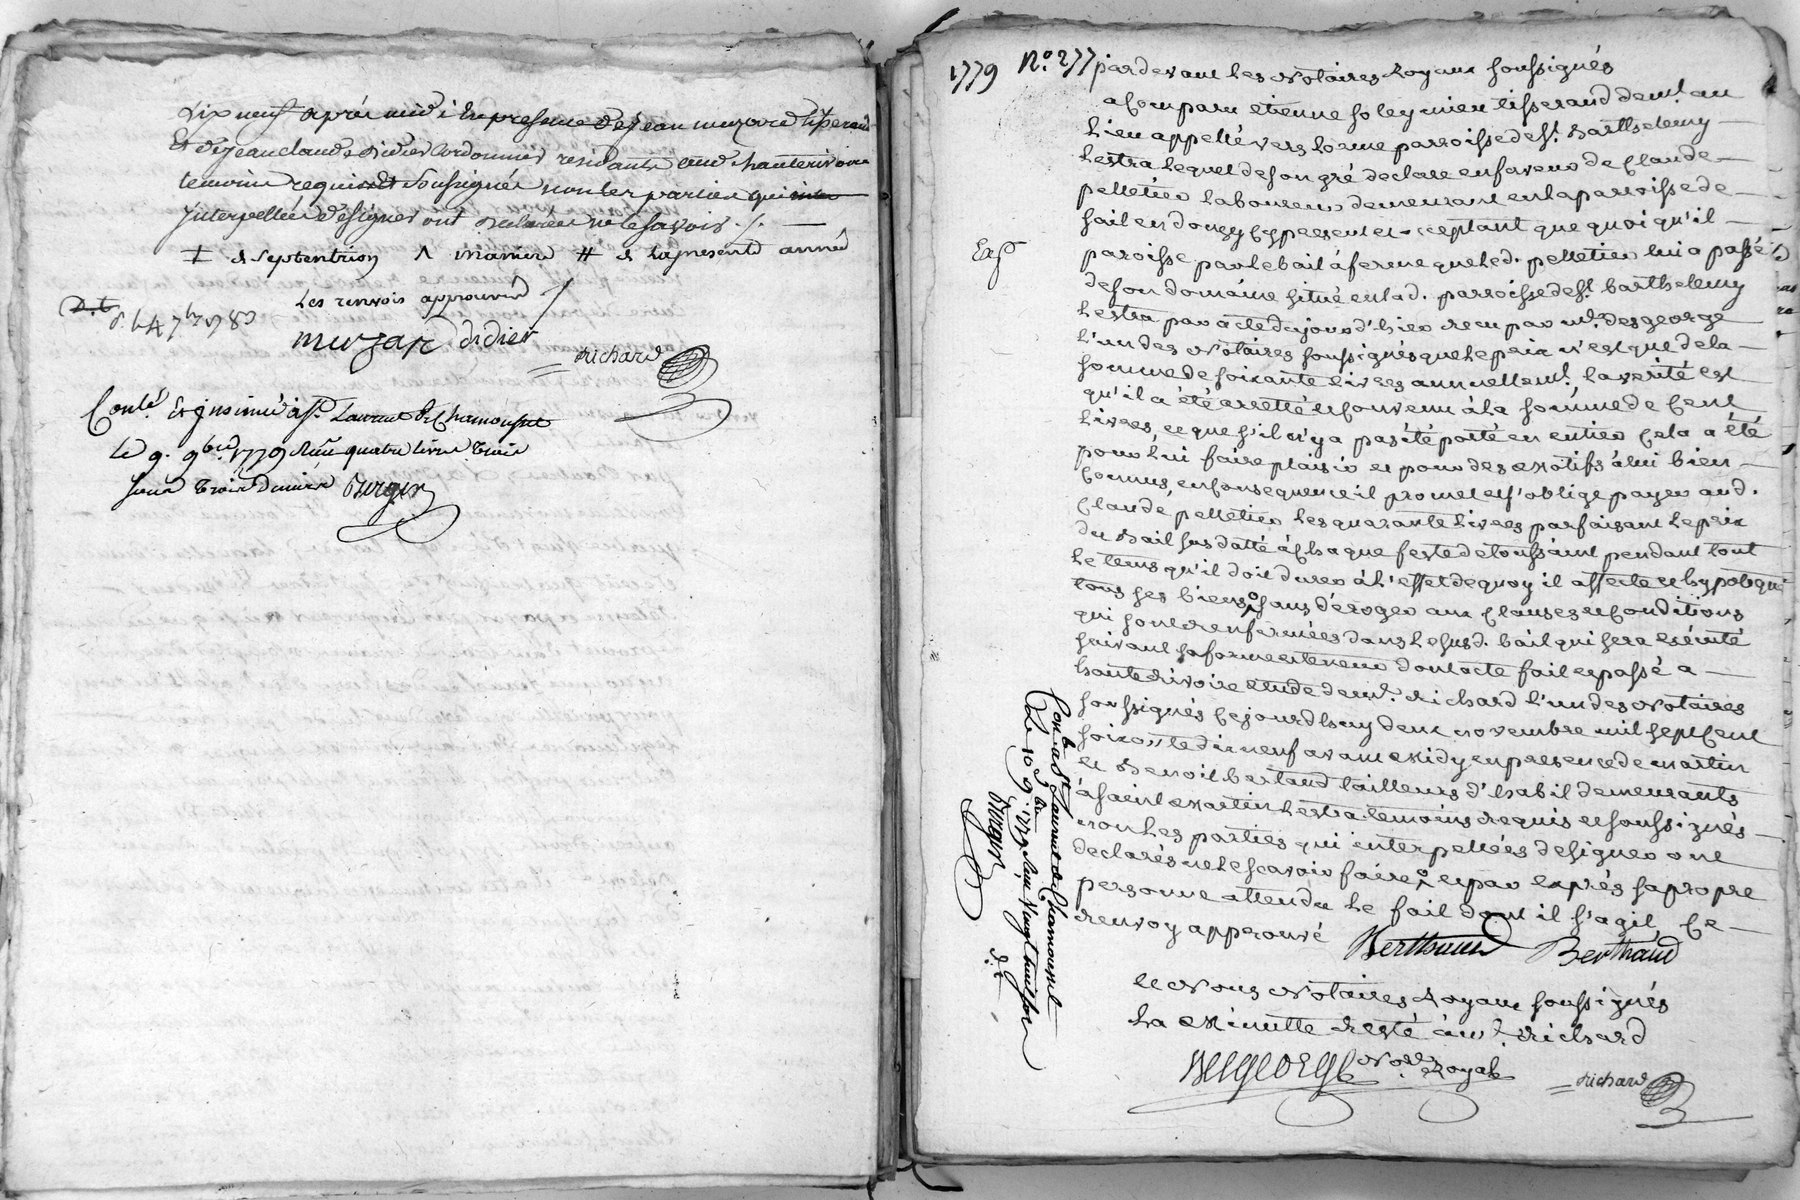 dix neuf après midi en presence de jean muzard tisserand
Et de jean claude didier Cordonnier residants aud. hauterivoire
temoins requis et soussignés non les parties qui
Interpellées de signer ont declarées ne le savoir ./.
‡ de septentrion ^ maniere # de la presente année
Les renvois approuvés
d. le 4 7bre 1780
muzar didier
Richard
Conlé. Et insinué à St. Laurent de Chamousset
Le 9. 9bre 1779 Reçu quatre livres Trois
sous Trois deniers Burgin
1779 No. 277 pardevant les Notaires Royaux soussignés
a Comparu etienne soleymieu tisserand demt. au
Lieu appellé vers lorme parroisse de st. Barthelemy
Lestra Lequel de son gré declare en faveur de Claude
pelletier Laboureur demeurant en la parroisse de
sail en donzy Cy present et acceptant que quoi qu'il
Exp
paroisse par Le bail à ferme que Led. pelletier lui a passé
de son domaine situé en lad. parroisse de st. Barthelemy
Lestra par acte du jour d'hier recu par me. desgeorge
L'un des Notaires soussignés que Le prix n'est que de la
somme de soixante livres annuellemt., la verité est
qu'il a été arretté et Convenu à La somme de Cent
Livres, et que s'il n'y a pas été porté en entier Cela a été
pour Lui faire plaisir et pour des motifs à lui bien
Connus, en Consequence il promet et s'oblige payer aud.
Claude pelletier Les quarante Livres parfaisant Le prix
du Bail sus datté à Chaque feste de toussaint pendant tout
Le tems qu'il doit durer à L'effet de quoy il affecte et hypotequé
tous ses biens sans déroger aux Clauses et Conditions
qui sont renfermées dans Le susd. bail qui sera exécuté
suivant sa forme et teneur dont acte fait et passé a
hauterivoire etude de me. Richard L'un des Notaires
soussignés Cejourdhuy deux novembre mil sept Cent
soixante dix neuf avant midy en presence de martin
et Benoit bertaud tailleurs d'habit demeurants
à saint martin Lestra temoins requis et soussignés
non Les parties qui interpellées de signer ont
declarés ne le scavoir faire et par exprés sa propre
personne attendu Le fait dont il s'agit, Ce
renvoy approuvé
Berthaud Berthaud
et Nous Notaires Royaux soussignés
La Minutte resté à me. Richard
Desgeorge Nore. Royal
Richard
Conlé. à St. Laurent de Chamousset
Le 10 9bre 1779 Reçu Vingt huit sols
Burgin